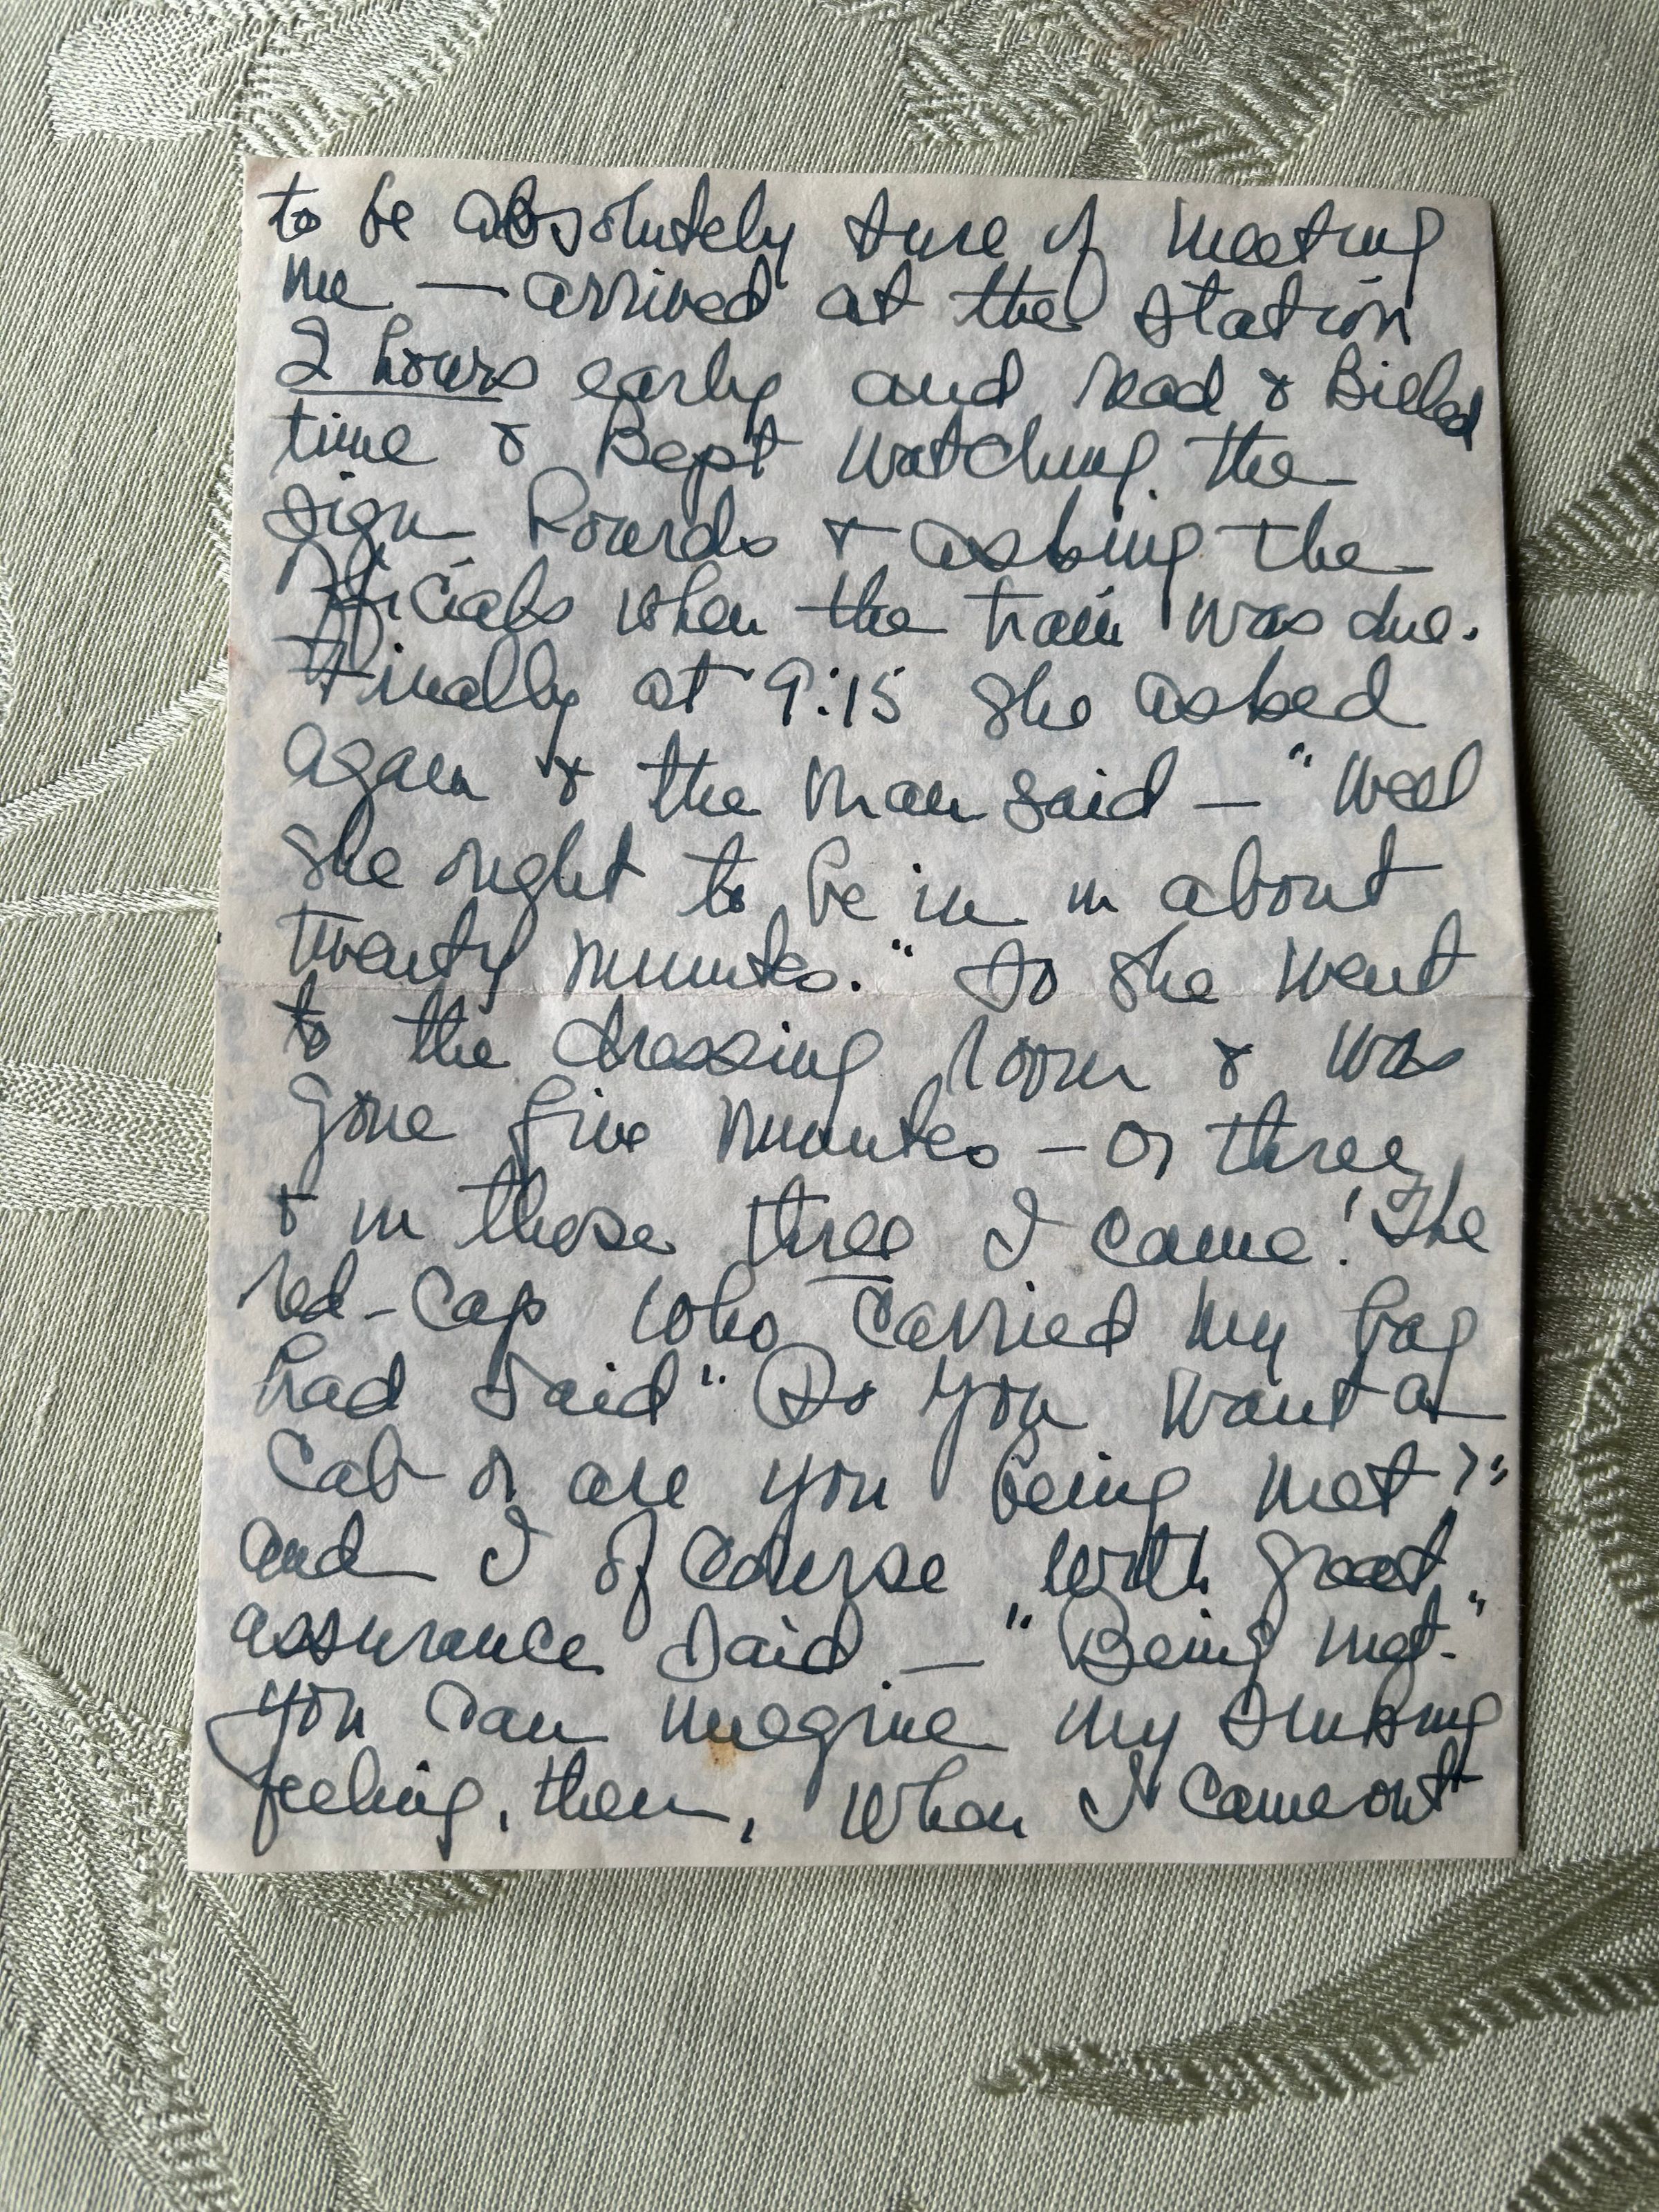 to be absolutely sure of meeting
me — arrived at the station
2 hours early and read & killed
time & kept watching the
sign boards & asking the
officials when the train was due.
Finally at 9:15 she asked
again & the man said — "Well
she ought to be in in about
twenty minutes." So she went
to the dressing room & was
gone five minutes — or three
& in those three I came! The
red-cap who carried my bag
had said "Do you want a
cab or are you being met?"
and I of course with great
assurance said — "Being met."
You can imagine my sinking
feeling, then, when I came out